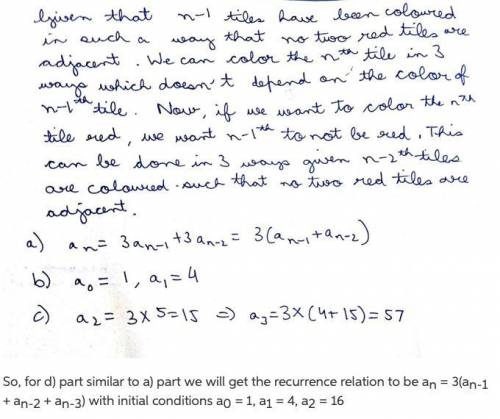 Given that n-1 tiles have been coloured
in such a way that no two red tiles are
adjacent. We can color the nth tile in 3
ways which doesn't depend on the color of
n-1th tile. Now, if we want to color the nth
tile red, we want n-1th to not be red. This
can be done in 3 ways given n-2th tiles
are coloured such that no two red tiles are
adjacent.
a) an = 3an-1 + 3an-2 = 3(an-1 + an-2)
b) a0 = 1, a1 = 4
c) a2 = 3×5 = 15 ⇒ a3 = 3×(4+15) = 57
So, for d) part similar to a) part we will get the recurrence relation to be an = 3(an-1
+ an-2 + an-3) with initial conditions a0 = 1, a1 = 4, a2 = 16